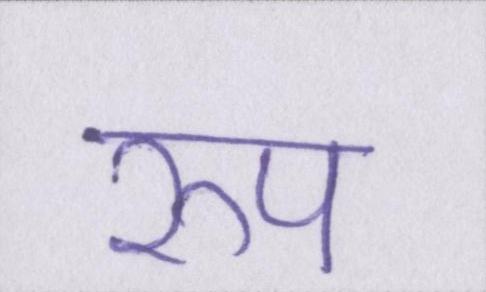 रुप